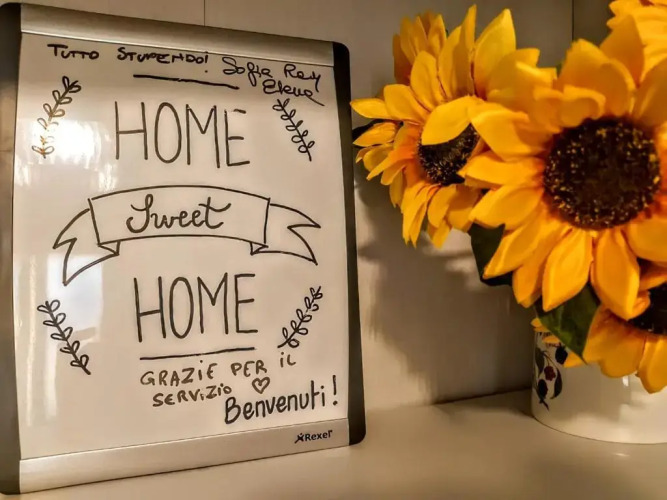 TUTTO STUPENDO! Sofia
HOME
Sweet
HOME
GRAZIE PER IL
SERVIZIO
Benvenuti!
Rexel